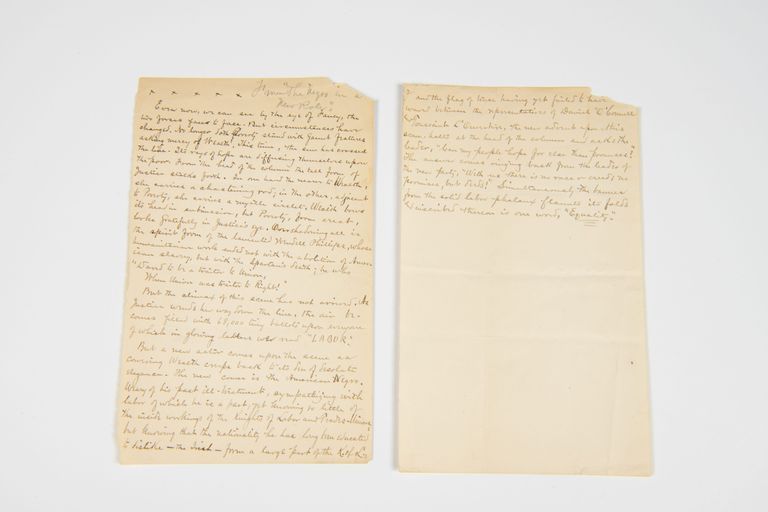 x x x x x From "The Negro in a
New Role".
Even now, we can see by the eye of Fancy, the
two forces face to face. But circumstances have
changed. No longer doth Poverty stand with gaunt features
asking mercy of Wealth. This time, the sun has crossed
the line. Its rays of hope are diffusing themselves upon
the poor. From the head of the column the tall form of
Justice strides forth. In one hand the nearer to Wealth,
she carries a chastening rod, in the other, adjacent
to Poverty, she carries a myrtle circlet. Wealth bows
its head in submission, but Poverty, form erect,
looks gratefully in Justice's eye. Overshadowing all is
the spirit form of the lamented Wendell Phillips, whose
humanitarian work ended not with the abolition of Amer-
ican slavery, but with the Spartan's death; he who
"Dared to be a traitor to Union,
When Union was traitor to Right!"
But the climax of this scene has not arrived. As
Justice wends her way down the line, the air be-
comes filled with 68,000 tiny ballots upon everyone
of which in glowing letters was read "LABOR".
But a new actor comes upon the scene as
cowering Wealth creeps back to its den of dissolute
elegance. The new comer is the American Negro.
Weary of his past ill-treatment, sympathizing with
labor of which he is a part, yet knowing so little of
the inside workings of the Knights of Labor and
but knowing that the nationality he has long been educated
to dislike — the Irish — form a large part of the K. of L.,
2 and the flag of truce having yet failed to have
waved between the representatives of Daniel O'Connell
& Toussaint L'Ouverture, the new advent upon this
scene, halts at the head of the column and asks the
leader, "Can my people hope for else than promises?"
The answer comes ringing back from the leader of
the new party, "With us there is no race or creed, no
promises, but deeds!" Simultaneously the banner
from the solid labor phalanx flaunts its folds
& inscribed thereon is one word, "Equality".